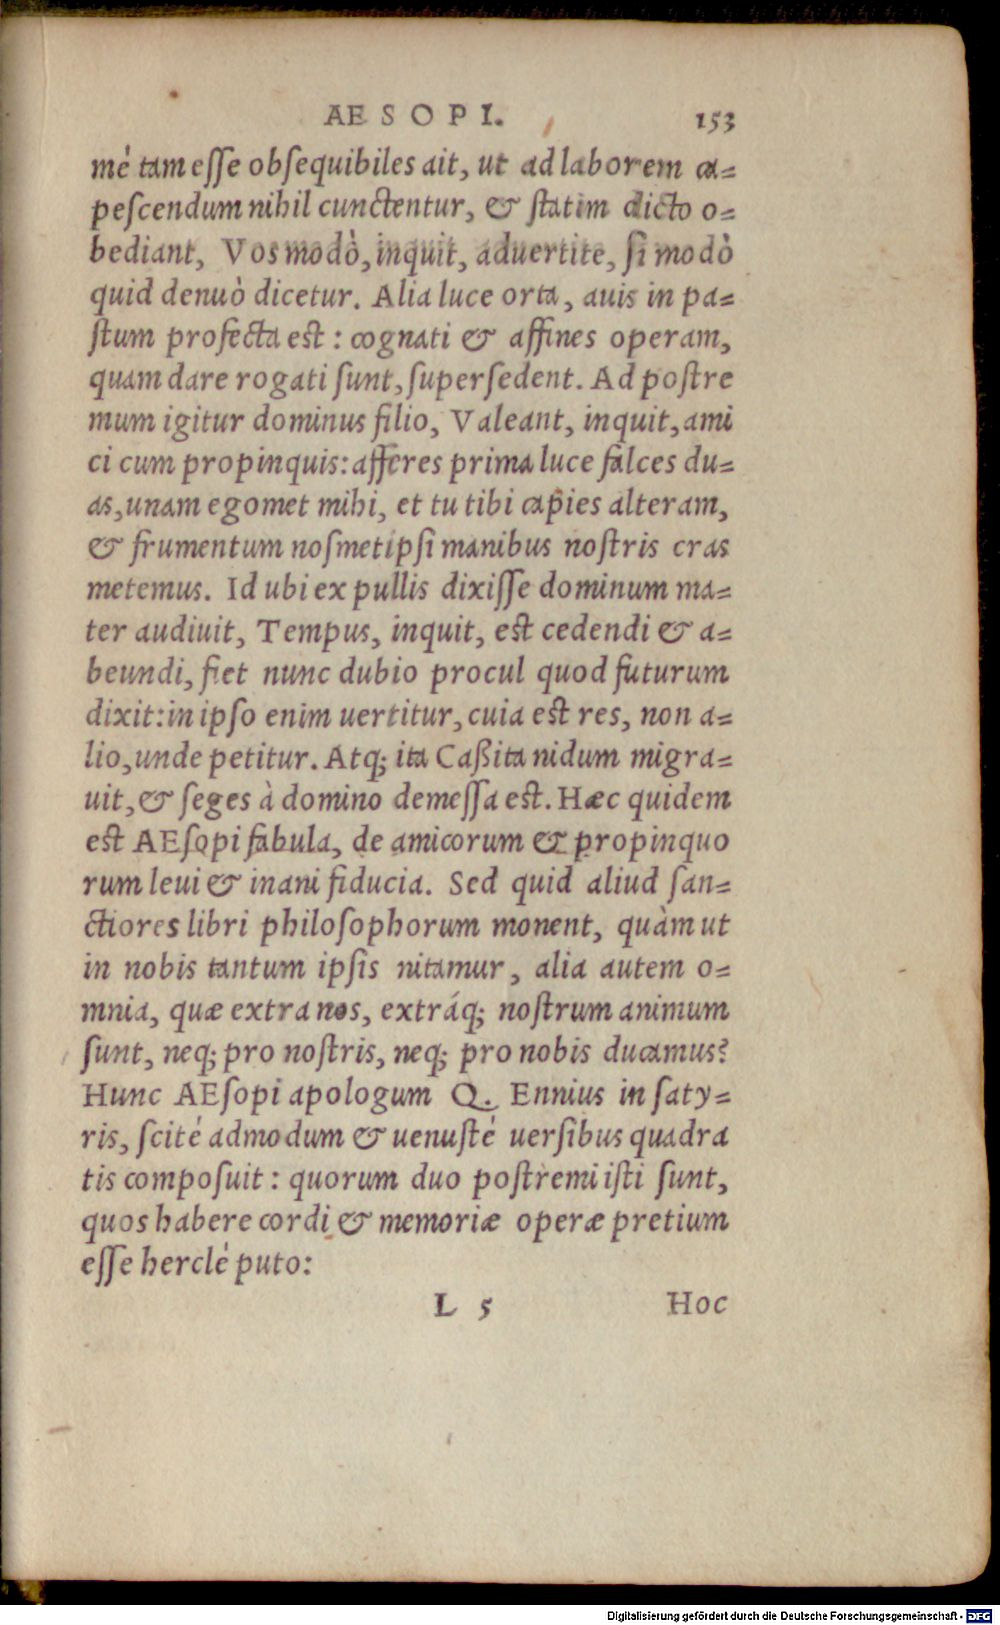 AESOPI. 153
mè tam eſſe obſequibiles ait, ut ad laborem ca-
peſcendum nihil cunctentur, & ſtatim dicto o-
bediant, Vos modò, inquit, aduertite, ſi modò
quid denuò dicetur. Alia luce orta, auis in pa-
ſtum profecta est: cognati & affines operam,
quam dare rogati ſunt, ſuperſedent. Ad poſtre
mum igitur dominus filio, Valeant, inquit, ami
ci cum propinquis: afferes prima luce falces du-
as, unam egomet mihi, et tu tibi capies alteram,
& frumentum noſmetipſi manibus noſtris cras
metemus. Id ubi ex pullis dixiſſe dominum ma-
ter audiuit, Tempus, inquit, est cedendi & a-
beundi, fiet nunc dubio procul quod futurum
dixit: in ipſo enim uertitur, cuia est res, non a-
lio, unde petitur. Atq; ita Caßita nidum migra-
uit, & ſeges à domino demeſſa est. Hæc quidem
est AEſopi fabula, de amicorum & propinquo
rum leui & inani fiducia. Sed quid aliud ſan-
ctiores libri philoſophorum monent, quàm ut
in nobis tantum ipſis nitamur, alia autem o-
mnia, quæ extra nos, extráq; noſtrum animum
ſunt, neq; pro noſtris, neq; pro nobis ducamus?
Hunc AEſopi apologum Q. Ennius in ſaty-
ris, ſcité admodum & uenuſté uerſibus quadra
tis compoſuit: quorum duo poſtremi iſti ſunt,
quos habere cordi & memoriæ operæ pretium
eſſe herclè puto:
L 5 Hoc
Digitalisierung gefördert durch die Deutsche Forschungsgemeinschaft - DFG